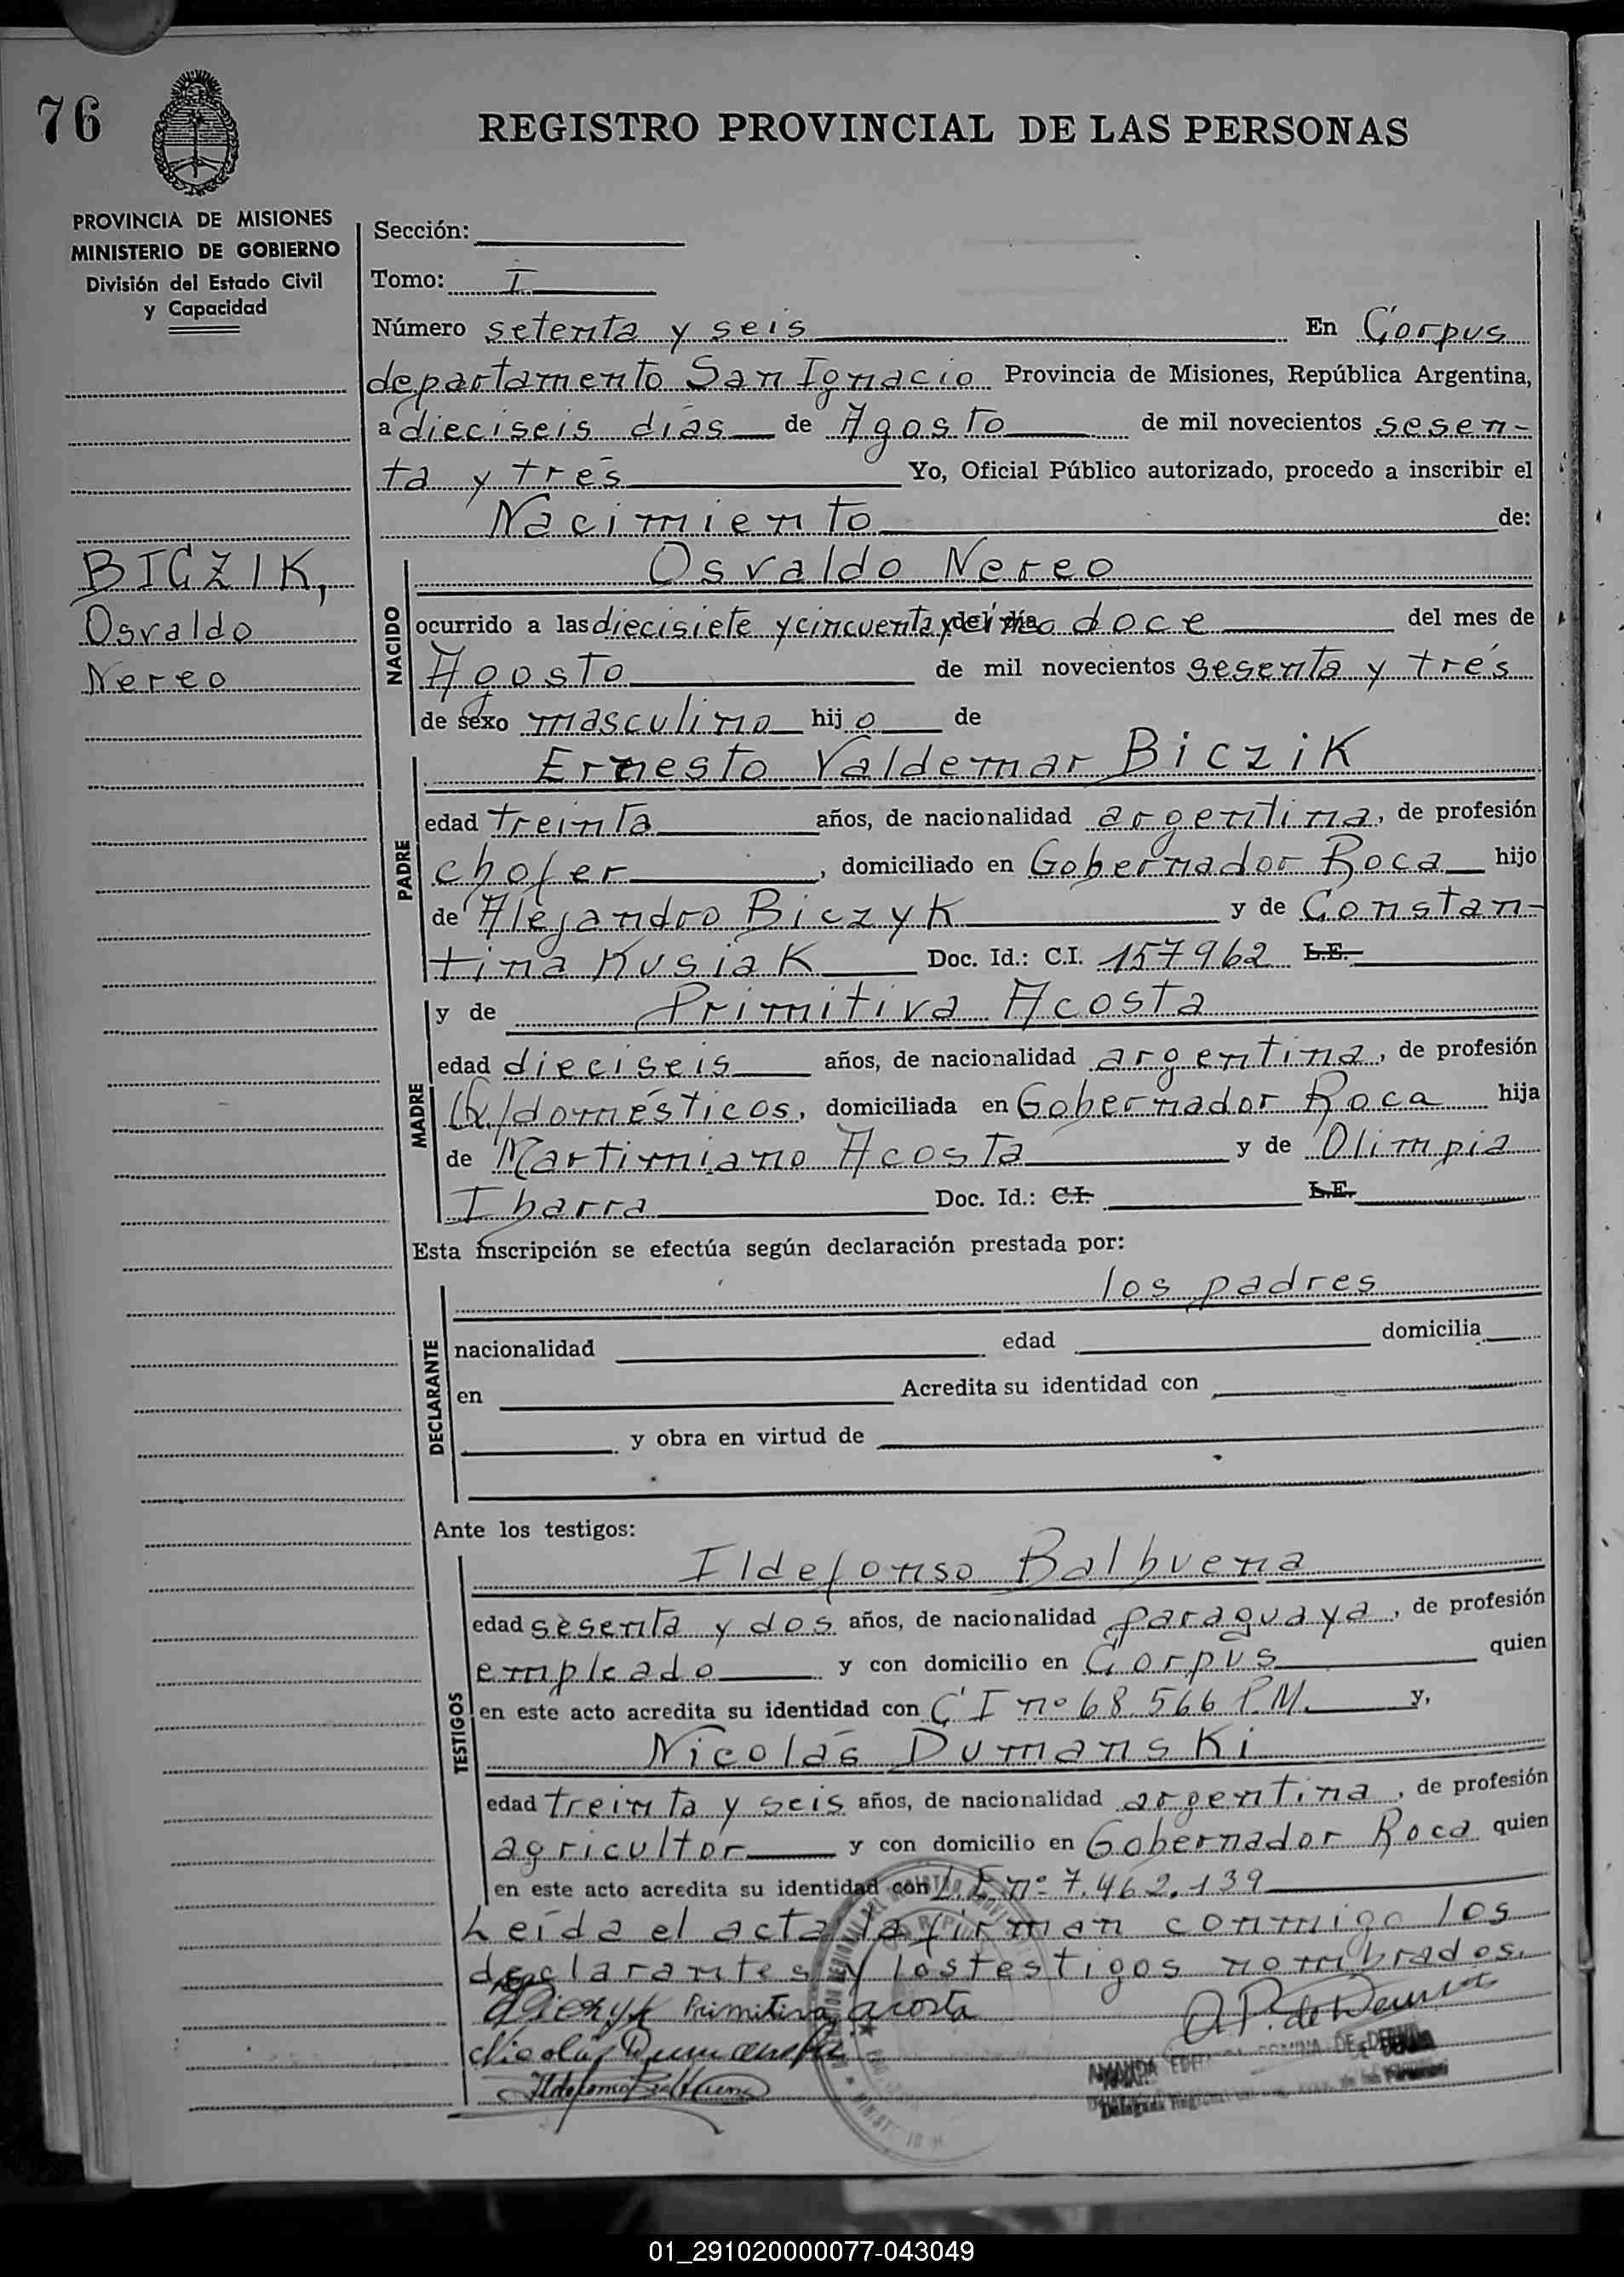 76
REGISTRO PROVINCIAL DE LAS PERSONAS
PROVINCIA DE MISIONES
MINISTERIO DE GOBIERNO
División del Estado Civil
y Capacidad
BICZIK,
Osvaldo
Nereo
Sección:
Tomo: I
Número setenta y seis En Corpus
departamento San Ignacio Provincia de Misiones, República Argentina,
a dieciseis días de Agosto de mil novecientos sesen-
ta y tres Yo, Oficial Público autorizado, procedo a inscribir el
Nacimiento de:
NACIDO
Osvaldo Nereo
ocurrido a las diecisiete y cincuenta y del día doce del mes de
Agosto de mil novecientos sesenta y tres
de sexo masculino hijo de
PADRE
Ernesto Valdemar Biczik
edad treinta años, de nacionalidad argentina, de profesión
chofer, domiciliado en Gobernador Roca hijo
de Alejandro Biczyk y de Constan-
tina Kusiak Doc. Id.: C.I. 157962 L.E.
MADRE
y de Primitiva Acosta
edad dieciseis años, de nacionalidad argentina, de profesión
domésticos, domiciliada en Gobernador Roca hija
de Martimiano Acosta y de Olimpia
Ibarra Doc. Id.: C.I. L.E.
Esta inscripción se efectúa según declaración prestada por:
DECLARANTE
los padres
nacionalidad edad domicilia
en Acredita su identidad con
y obra en virtud de
Ante los testigos:
TESTIGOS
Ildefonso Balbuena
edad sesenta y dos años, de nacionalidad paraguaya, de profesión
empleado y con domicilio en Corpus quien
en este acto acredita su identidad con C I nº 68.566 P.M. y,
Nicolás Dumanski
edad treinta y seis años, de nacionalidad argentina, de profesión
agricultor y con domicilio en Gobernador Roca quien
en este acto acredita su identidad con L.E. nº 7.462.139
Leída el acta la firman conmigo los
declarantes y los testigos nombrados.
Biczyk Primitiva acosta
Nicolás Dumanski
Ildefonso Balbuena
AMANDA
01_291020000077-043049